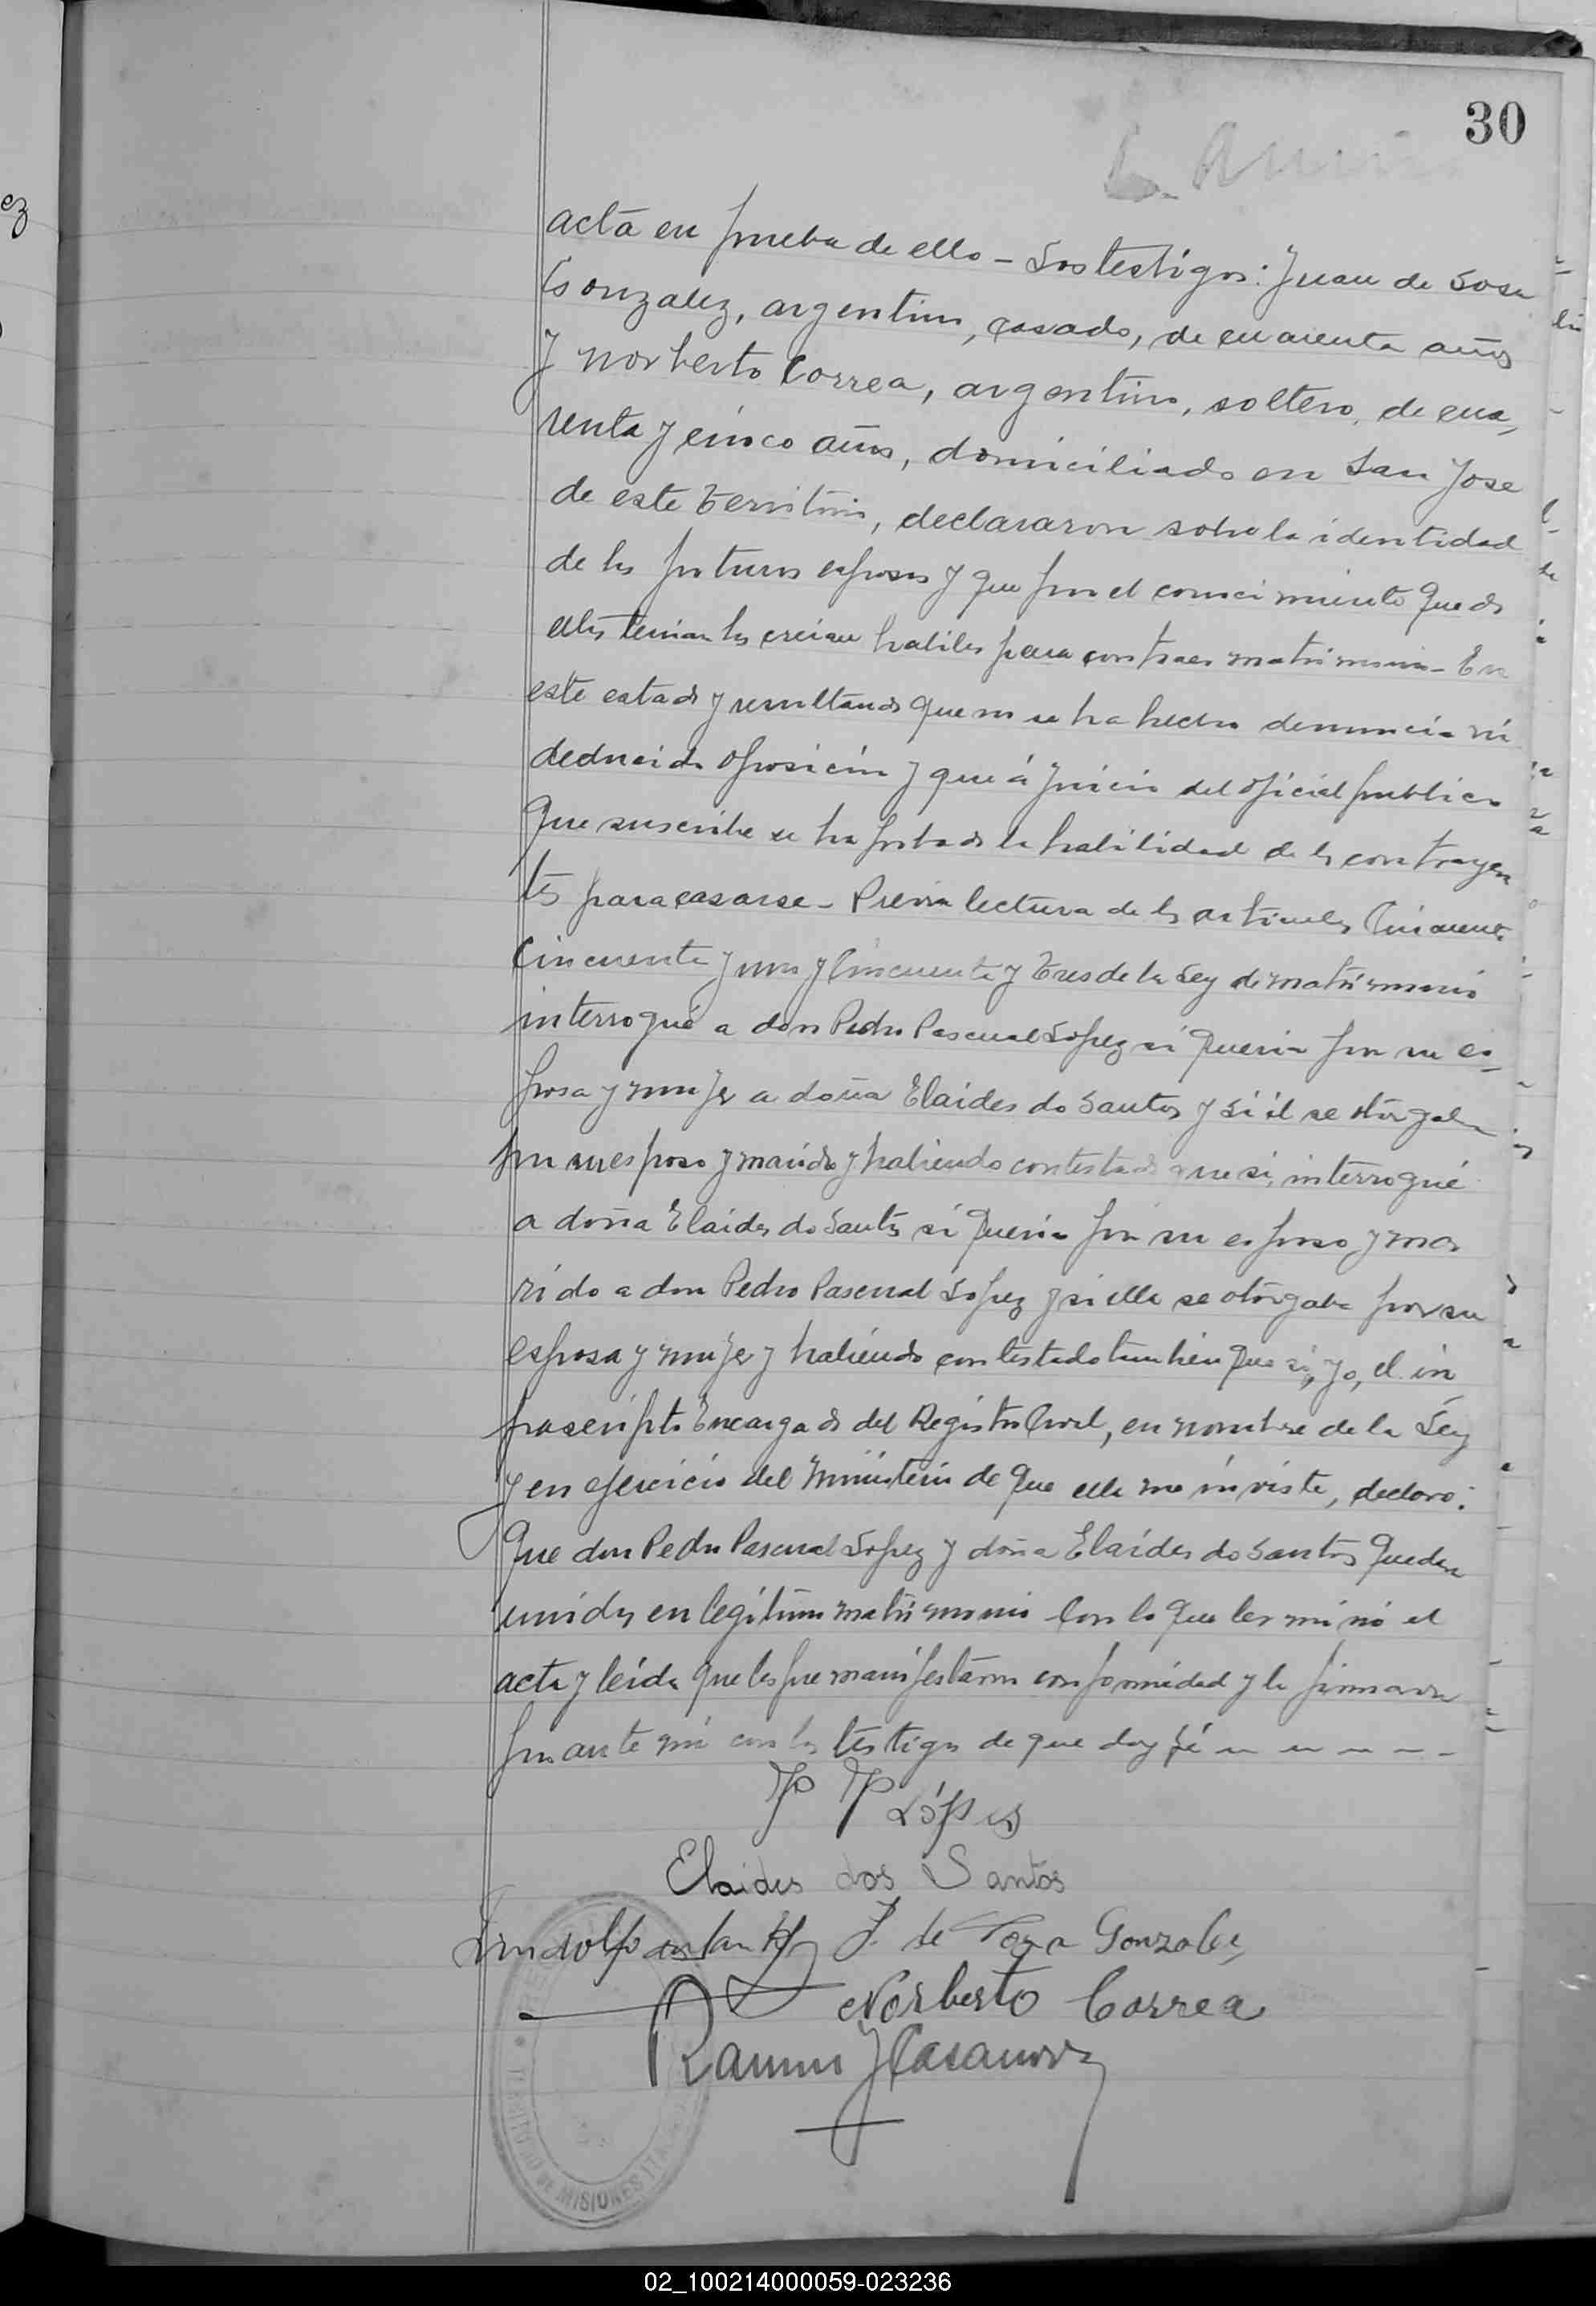 30
acta en prueba de ello - Los testigos: Juan de Sosa
Gonzalez, argentino, casado, de cuarenta años
y Norberto Correa, argentino, soltero, de cua-
renta y cinco años, domiciliado en San Jose
de este Territorio, declararon sobre la identidad
de los futuros esposos y que por el conocimiento que de
ellos tenian los creian habiles para contraer matrimonio - En
este estado y resultando que no se ha hecho denuncia ni
deducido oposición y que á juicio del oficial publico
que suscribe se ha probado la habilidad de los contrayen
tes para casarse - Previa lectura de los articulos Cincuenta
Cincuenta y uno y Cincuenta y tres de la Ley de matrimonio
interrogué a don Pedro Pascual Lopez si queria por su es-
posa y mujer a doña Elaides do Santos y si él se otorgaba
por su esposo y marido y habiendo contestado que si, interrogué
a doña Elaides do Santos si queria por su esposo y ma
rido a don Pedro Pascual Lopez y si ella se otorgaba por su
esposa y mujer y habiendo contestado tambien que si, yo, el in
frascripto Encargado del Registro Civil, en nombre de la Ley
y en ejercicio del Ministerio de que ella me inviste, declaro:
Que don Pedro Pascual Lopez y doña Elaides do Santos quedan
unidos en legitimo matrimonio Con lo que terminó el
acta y leida que les fue manifestaron conformidad y la firmaron
por ante mi con los testigos de que doy fé
P P Lópes
Elaides dos Santos
J. de Sosa Gonzalez
Norberto Correa
Ramon J Casanova
DE MISIONES
02_100214000059-023236